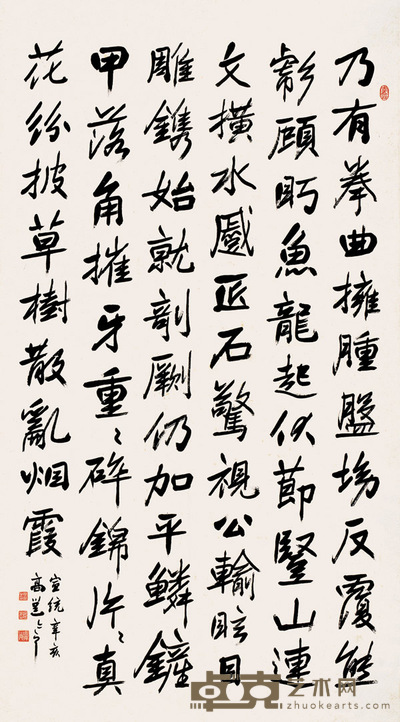 乃有拳曲擁腫盤坳反覆熊
彪顧眄魚龍起伏節豎山連
文橫水蹙匠石驚視公輸眩目
雕鐫始就剞劂仍加平鱗鏟
甲落角摧牙重〻碎錦片〻真
花紛披草樹散亂烟霞
宣統辛亥
高邕之
卓克艺术网
zhuokearts.com